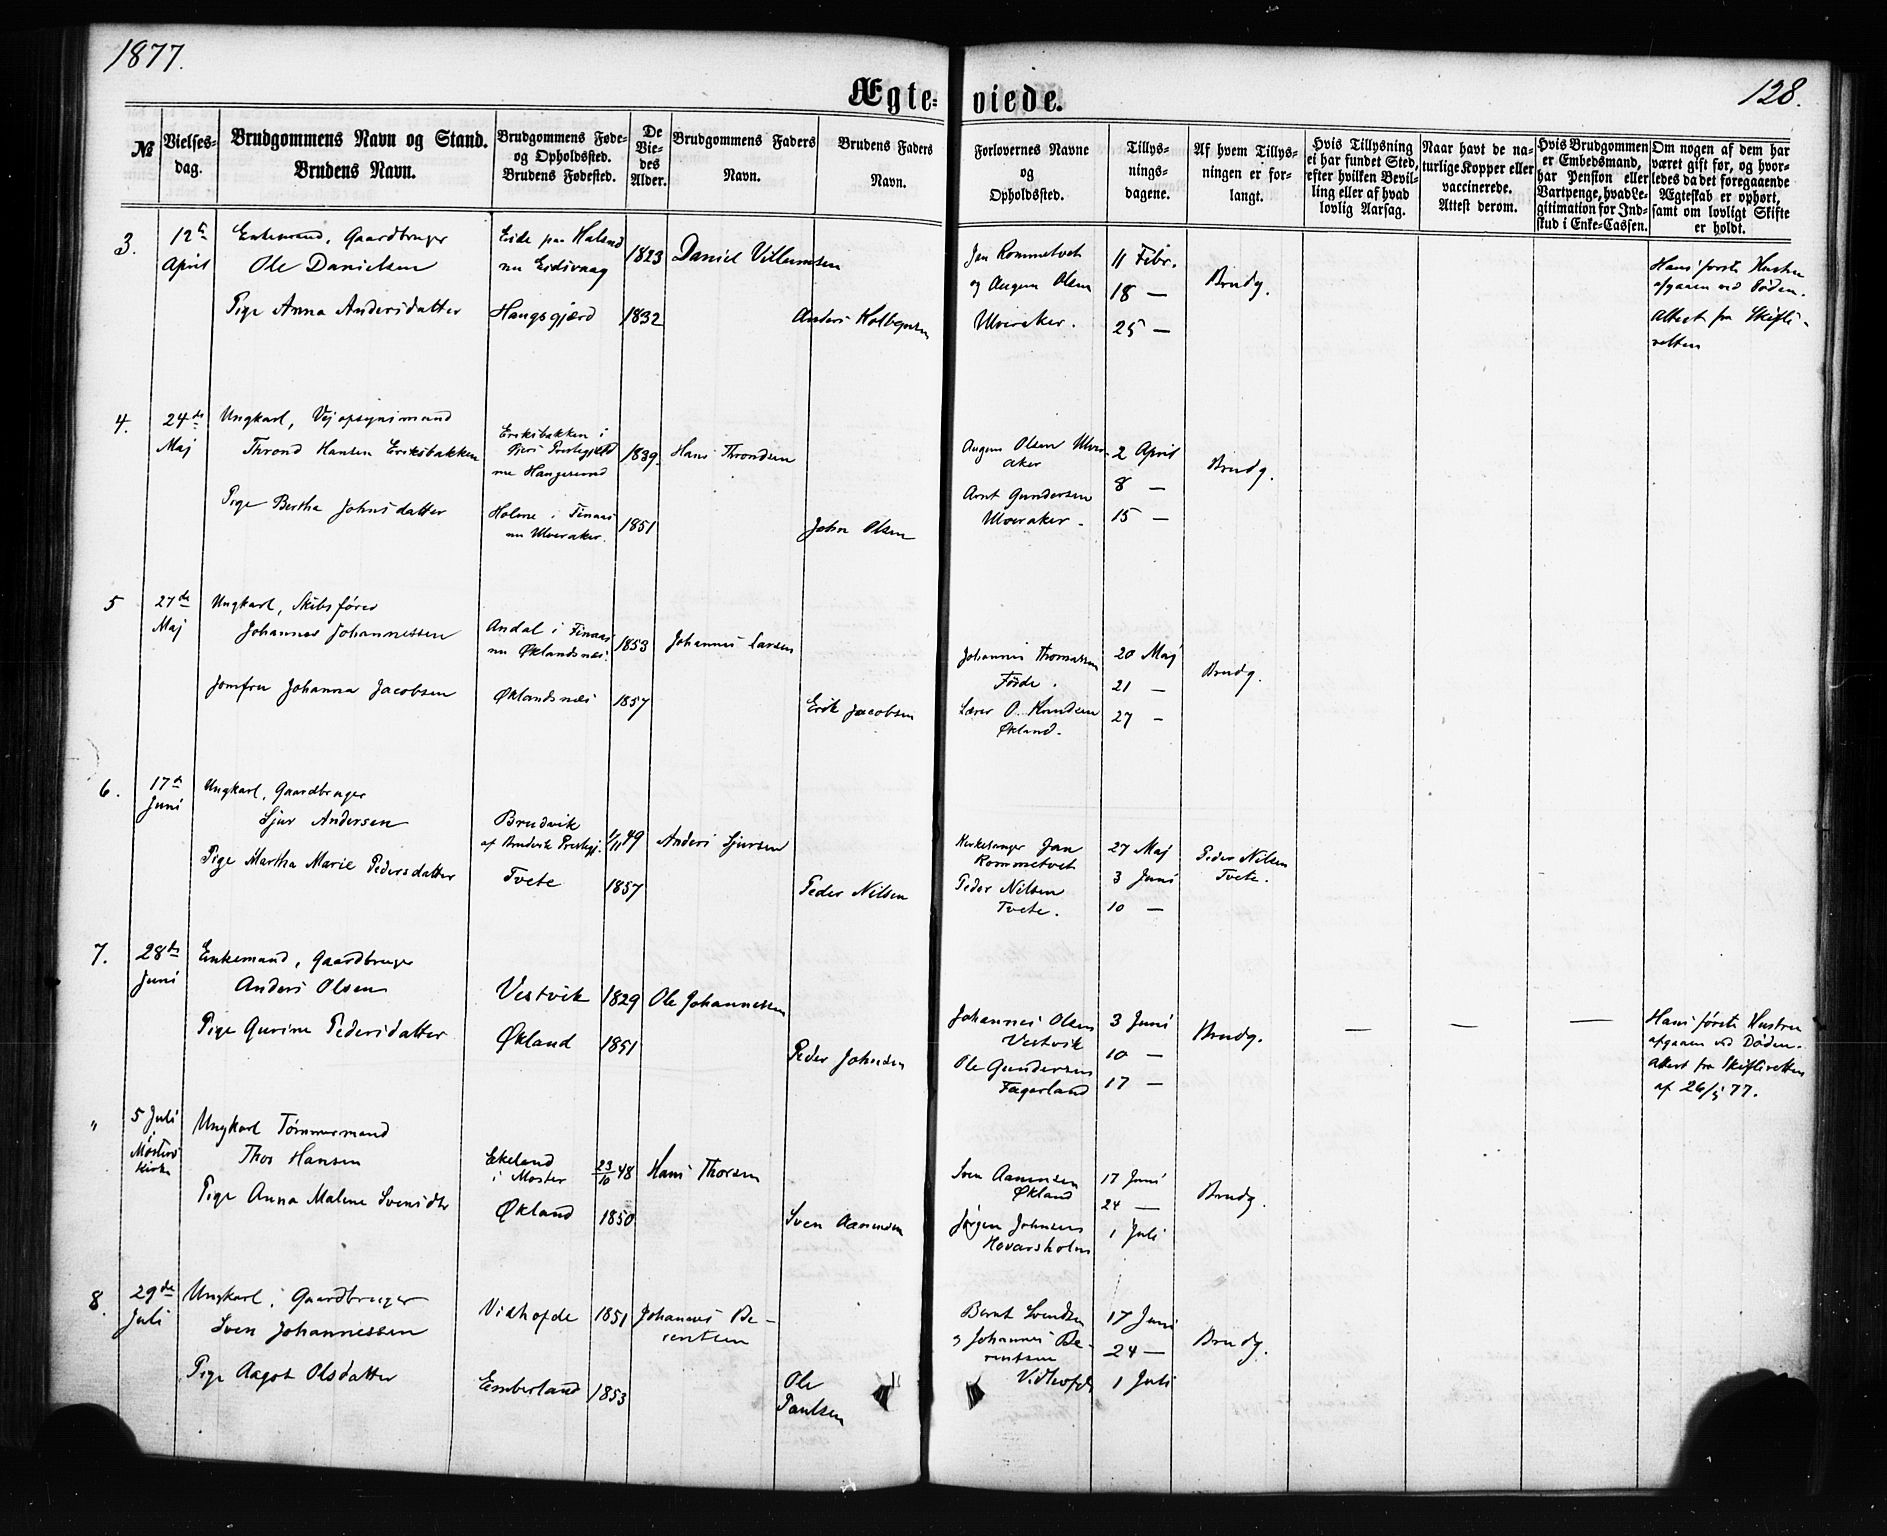 1877.
128.
Ægte= viede.
№
Vielses-
dag.
Brudgommens Navn og Stand.
Brudens Navn.
Brudgommens Føde-
og Opholdssted.
Brudens Fødested.
De
Vie-
des
Alder.
Brudgommens Faders
Navn.
Brudens Faders
Navn.
Forlovernes Navne
og
Opholdssted.
Tillys-
nings-
dagene.
Af hvem Tillys-
ningen er for-
langt.
Hvis Tillysning
ei har fundet Sted,
efter hvilken Bevil-
ling eller af hvad
lovlig Aarsag.
Naar havt de na-
turlige Kopper eller
vaccinerede.
Attest derom.
Hvis Brudgommen
er Embedsmand,
har Pension eller
Vartpenge, hvad Le-
gitimation for Ind-
skud i Enke-Cassen.
Om nogen af dem har
været gift før, og hvor-
ledes da det foregaaende
Ægteskab er ophørt,
samt om lovligt Skifte
er holdt.
3.
12te
April
Enkemand, Gaardbruger
Ole Danielsen
Eide paa Halsnø
nu Eidsvaag
1823
Daniel Villumsen
Pige Anna Andersdatter
Haugsgjærd
1832
Anders Kolbensen
Jan Rommetvet
og Augun Olsen
Ulveraker.
11 Febr.
18 —
25 —
Brudg.
Hans første Hustru
afgaaen ved Døden.
Attest fra Skifte-
retten
4.
24de
Maj
Ungkarl, Vejopsynsmand
Thrond Hansen Eriksbakken
Eriksbakken i
Præstegjeld
nu Haugesund
1839.
Hans Throndsen
Pige Bertha Johnsdatter
Holme i Finaas
nu Ulveraker.
1851
John Olsen
Augun Olsen Ulver-
aker
Arnt Gundersen
Ulveraker.
2 April
8 —
15 —
Brudg.
5
27de
Maj
Ungkarl, Skibsfører
Johannes Johannessen
Andal i Finaas
nu Øklandsnæs.
1853
Johannes Larsen
Jomfru Johanna Jacobsen
Øklandsnæs
1857
Erik Jacobsen
Johannes Thomassen
Førde.
Lærer O. Knudsen
Økland.
20 Maj
21 —
27 —
Brudg.
6.
17de
Juni
Ungkarl, Gaardbruger
Sjur Andersen
Brudvik
af Brudvik Prestegj.
1/11 49
Anders Sjursen
Pige Martha Marie Pedersdatter
Tvete
1857
Peder Nilsen
Kirkesanger Jan
Rommetvet
Peder Nilsen
Tvete.
27 Maj
3 Juni
10 —
Peder Nilsen
Tvete.
7.
28de
Juni
Enkemand, Gaardbruger
Anders Olsen
Vestvik
1829
Ole Johannessen
Pige Gurine Pedersdatter
Økland
1851
Peder Johnsen
Johannes Olsen
Vestvik
Ole Gundersen
Fagerland
3 Juni
10 —
17 —
Brudg.
—
—
—
Hans første Hustru
afgaaen ved Døden.
Attest fra Skifteretten
af 26/5 77.
"
5 Juli
i
Mosters
Kirke
Ungkarl Tømmermand
Thor Hansen
Ekeland
i Moster
23/10 48
Hans Thorsen
Pige Anna Malene Svensdtr
Økland
1850
Sven Aanensen
Sven Aanensen
Økland
Jørgen Johnsen
Hovarsholm
17 Juni
24 —
1 Juli
Brudg.
8.
29de
Juli
Ungkarl, Gaardbruger
Sven Johannessen
Vidhofde
1851
Johannes Be-
rentsen
Pige Aagot Olsdatter
Emberland
1853
Ole
Paulsen
Bernt Svendsen
og Johannes Be-
rentsen
Vidhofde
17 Juni
24 —
1 Juli
Brudg.